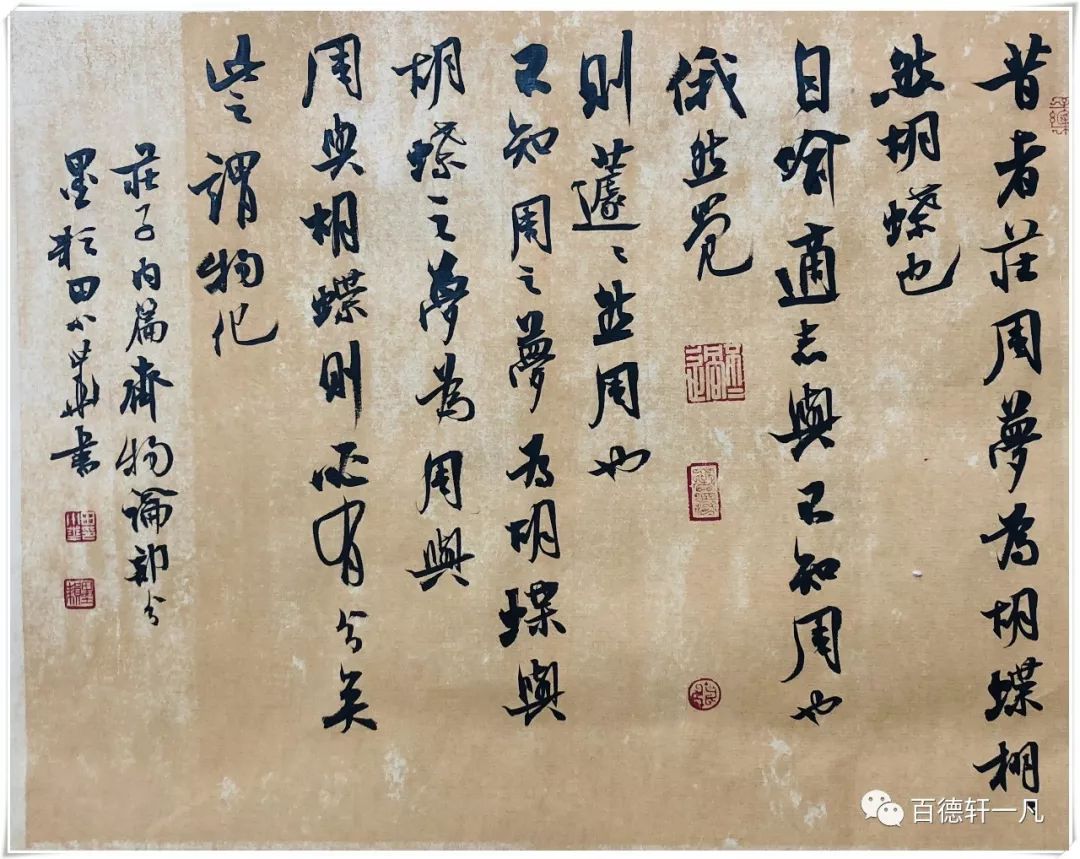 昔者莊周夢為胡蝶栩〻
然胡蝶也
自喻適志與不知周也
俄然覺
則蘧〻然周也
不知周之夢為胡蝶與
胡蝶之夢為周與
周與胡蝶則必有分矣
此之謂物化
莊子內篇齊物論部分
墨 田 書
百德轩一凡